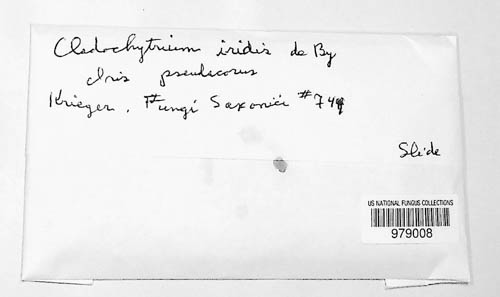 Cladochytrium iridis de By
Iris pseudacorus
Krieger, Fungi Saxonici #749
Slide
US NATIONAL FUNGUS COLLECTIONS
979008